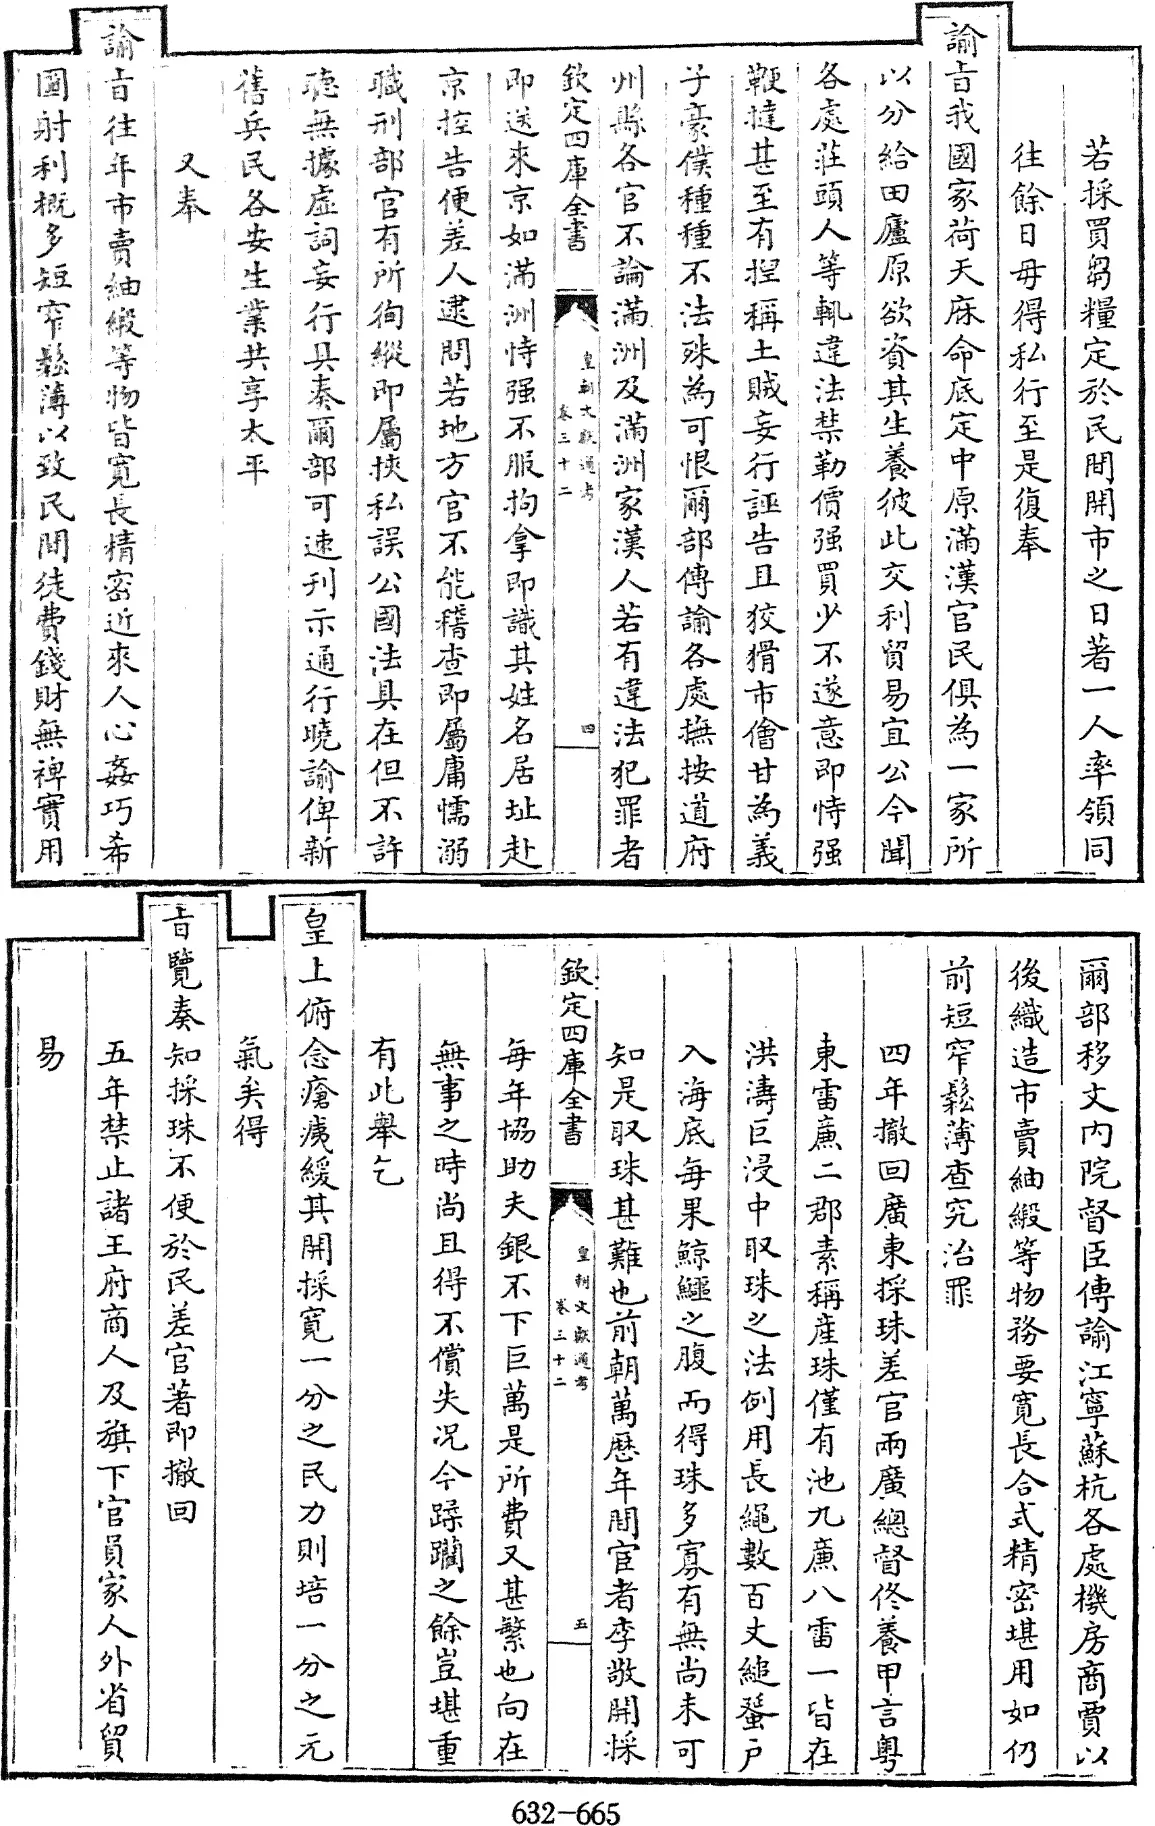 若採買芻糧定於民間開市之日著一人率領同
往餘日毋得私行至是復奉
諭㫖我國家荷天庥命底定中原滿漢官民俱為一家所
以分給田廬原欲資其生養彼此交利貿易宜公今聞
各處莊頭人等輒違法禁勒價强買少不遂意即恃强
鞭撻甚至有捏稱土賊妄行誣告且狡猾市儈甘為義
子豪僕種種不法殊為可恨爾部傳諭各處撫按道府
州縣各官不論滿洲及滿洲家漢人若有違法犯罪者
欽定四庫全書
皇朝文獻通考
卷三十二
四
即送來京如滿洲恃强不服拘拿即識其姓名居址赴
京控告便差人逮問若地方官不能稽查即屬庸懦溺
職刑部官有所徇縱即屬挾私誤公國法具在但不許
聴無據虛詞妄行具奏爾部可速刊示通行曉諭俾新
舊兵民各安生業共享太平
又奉
諭㫖往年市賣紬緞等物皆寛長精密近來人心姦巧希
圖射利概多短窄鬆薄以致民間徒費錢財無裨實用
爾部移文内院督臣傳諭江寧蘇杭各處機房商賈以
後織造市賣紬緞等物務要寛長合式精密堪用如仍
前短窄鬆薄查究治罪
四年撤回廣東採珠差官兩廣總督佟養甲言粤
東雷廉二郡素稱産珠僅有池九廉八雷一皆在
洪濤巨浸中取珠之法例用長繩數百丈縋蜑户
入海底每果鯨鱷之腹而得珠多寡有無尚未可
知是取珠甚難也前朝萬歴年間宦者李敬開採
欽定四庫全書
皇朝文獻通考
卷三十二
五
每年協助夫銀不下巨萬是所費又甚繁也向在
無事之時尚且得不償失况今蹂躪之餘豈堪重
有此舉乞
皇上俯念瘡痍緩其開採寛一分之民力則培一分之元
氣矣得
㫖覽奏知採珠不便於民差官著即撤回
五年禁止諸王府商人及旗下官員家人外省貿
易
632-665